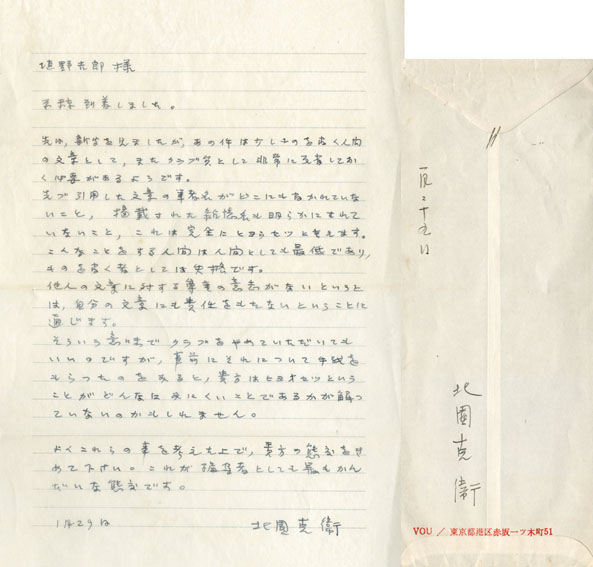 垣野吉郎 様
原稿到着しました。
先日、新聞を見ましたが、あの件は少しものを書く人間
の文章として、またクラブ員として非常に反省してお
く必要があるようです。
先づ引用した文章の筆者名がどこにも書かれていな
いこと、掲載された雑誌名も明らかにされて
いないこと、これは完全にヒョウセツと言えます。
こんなことをする人間は人間としても最低であり、
ものを書く者としては失格です。
他人の文章に対する尊重の意志がないという
は、自分の文章にも責任をもたないということに
通じます。
そういう意味でクラブをやめていただいても
いいのですが、事前にそれについて手紙を
もらったのをみると、貴方はヒョウセツという
ことがどんなにみにくいことであるかが解っ
ていないのかもしれません。
よくこれらの事を考えた上で、貴方の態度をき
めて下さい。これが編集者としても最もかん
だいな態度です。
1月29日 北園克衛
一月二十九日
北園克衛
VOU / 東京都港区赤坂一ツ木町51